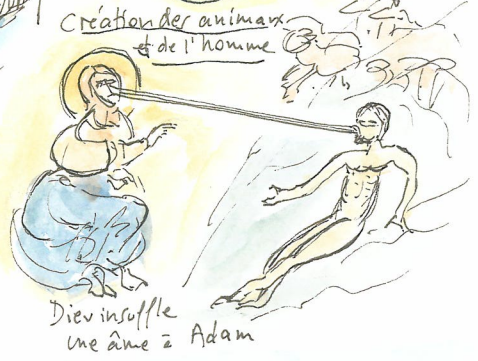 Création des animaux
et de l'homme
Dieu insuffle
une âme à Adam